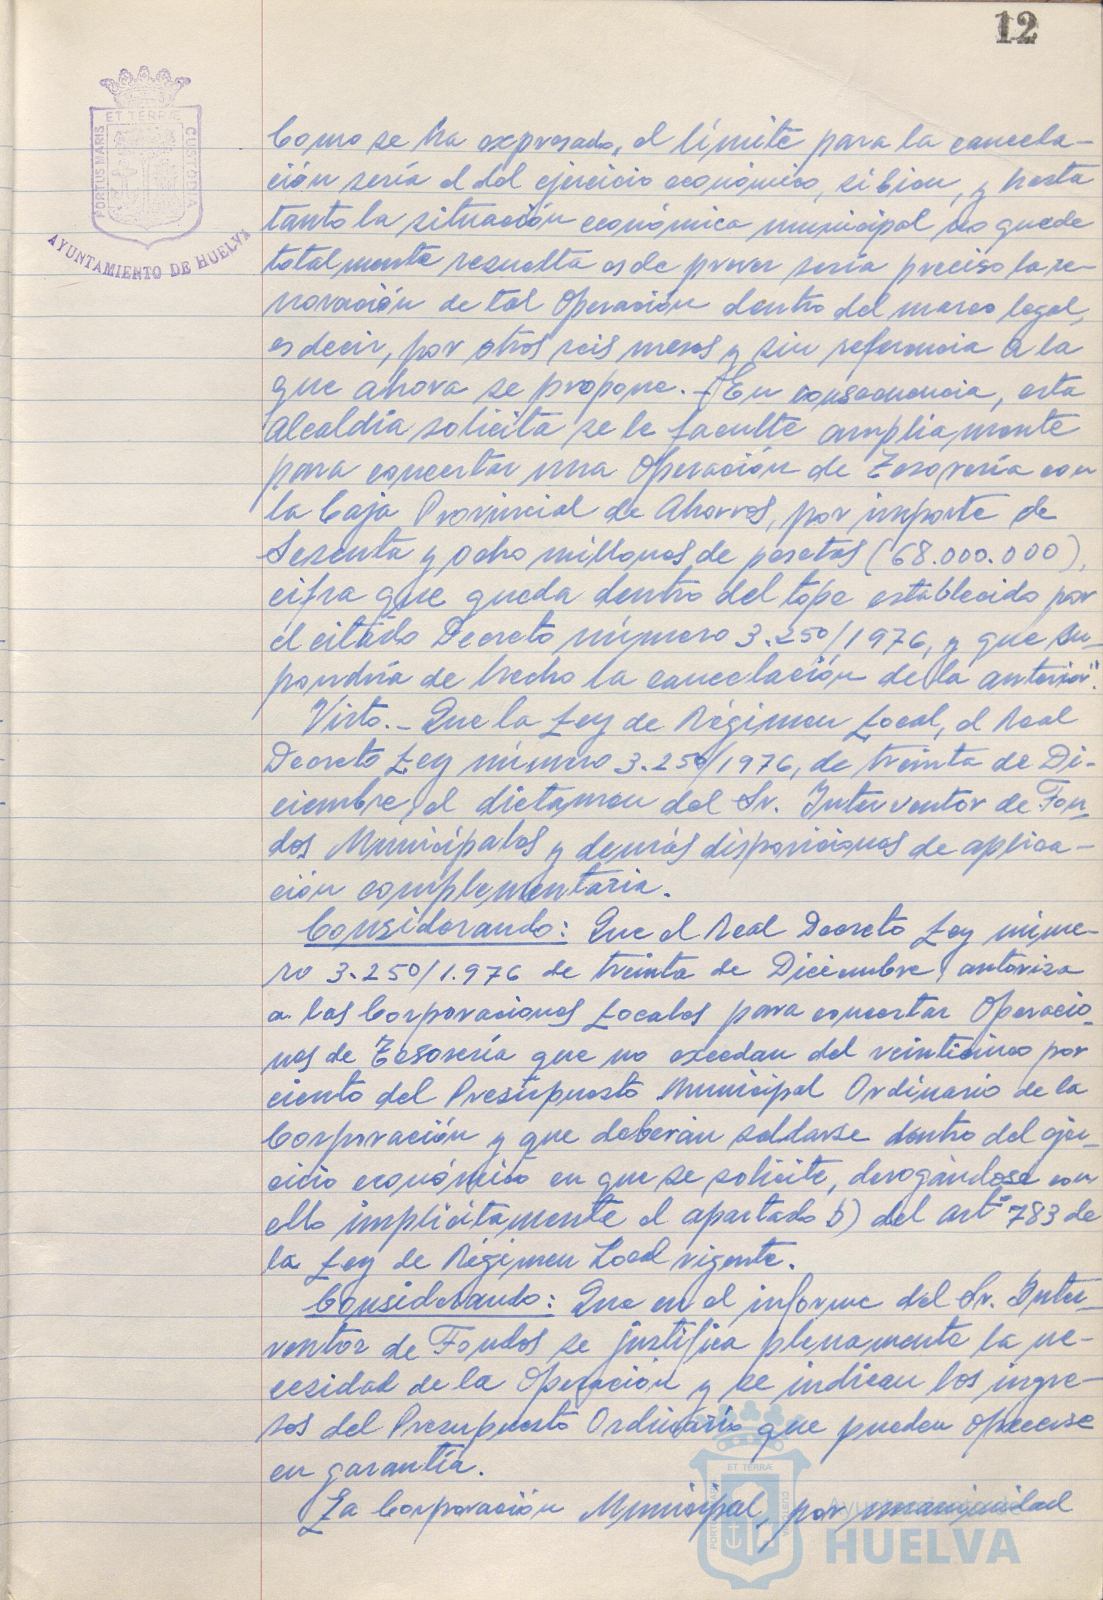 12
ET TERRÆ
PORTUS MARIS
CUSTODIA
AYUNTAMIENTO DE HUELVA
Como se ha expresado, el límite para la cancela-
ción sería el del ejercicio económico, si bien, y hasta
tanto la situación económica municipal no quede
totalmente resuelta es de prever sería preciso la re-
novación de tal Operación dentro del marco legal,
es decir, por otros seis meses y sin referencia a la
que ahora se propone.- En consecuencia, esta
Alcaldía solicita se le faculte ampliamente
para concertar una Operación de Tesorería con
la Caja Provincial de Ahorros, por importe de
Sesenta y ocho millones de pesetas (68.000.000),
cifra que queda dentro del tope establecido por
el citado Decreto número 3.250/1976, y que su-
pondría de hecho la cancelación de la anterior".
Visto.- Que la Ley de Régimen Local, el Real
Decreto Ley número 3.250/1976, de treinta de Di-
ciembre, el dictamen del Sr. Interventor de Fon-
dos Municipales y demás disposiciones de aplica-
ción complementaria.
Considerando: Que el Real Decreto Ley núme-
ro 3.250/1.976 de treinta de Diciembre, autoriza
a las Corporaciones Locales para concertar Operacio-
nes de Tesorería que no excedan del veinticinco por
ciento del Presupuesto Municipal Ordinario de la
Corporación y que deberán saldarse dentro del ejer-
cicio económico en que se solicite, derogándose con
ello implícitamente el apartado b) del artº 783 de
la Ley de Régimen Local vigente.
Considerando: Que en el informe del Sr. Inter-
ventor de Fondos se justifica plenamente la ne-
cesidad de la Operación y se indican los ingre-
sos del Presupuesto Ordinario que pueden ofrecerse
en garantía.
La Corporación Municipal, por unanimidad
ET TERRÆ
Ayuntamiento de
HUELVA